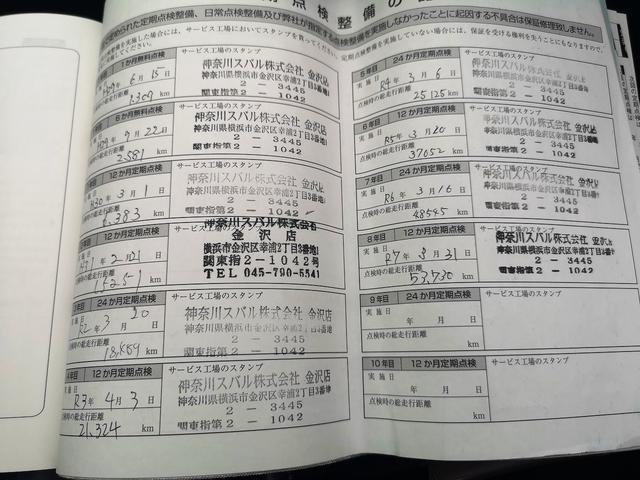 期点検整備の記
められた定期点検整備、日常点検整備及び弊社が指定する点検整備を実施しなかったことに起因する不具合は保証修理致しません。
整備を実施した場合には、サービス工場においてスタンプを貰ってください。定期点検整備を実施していない場合には、保証を受ける権利を失うこともなりますので、
してください。
1か月無料点検
サービス工場のスタンプ
H29年 6月 15日
1,309 km
神奈川スバル株式会社 金沢店
神奈川県横浜市金沢区幸浦2丁目3番地
2 − 3445
関東指第2 − 1042
6か月無料点検
サービス工場のスタンプ
H29年 9月 22日
点検時の総走行距離
2,581 km
神奈川スバル株式会社 金沢店
神奈川県横浜市金沢区幸浦2丁目3番地
2 − 3445
関東指第2 − 1042
12か月定期点検
サービス工場のスタンプ
H30年 3月 1日
の総走行距離
6,383 km
神奈川スバル株式会社 金沢店
神奈川県横浜市金沢区幸浦2丁目3番地
2 − 3445
関東指第2 − 1042
12か月定期点検
神奈川スバル株式会社
金沢店
横浜市金沢区幸浦2丁目3番地1
関東指2−1042号
TEL 045-790-5541
総走行距離
15251 km
24か月定期点検
サービス工場のスタンプ
R2年 3月 20日
の総走行距離
18,859 km
神奈川スバル株式会社 金沢店
神奈川県横浜市金沢区幸浦2丁目3番地
2 − 3445
関東指第2 − 1042
12か月定期点検
サービス工場のスタンプ
R3年 4月 3日
検時の総走行距離
21,324 km
神奈川スバル株式会社 金沢店
神奈川県横浜市金沢区幸浦2丁目3番地
2 − 3445
関東指第2 − 1042
5年目 24か月定期点検
サービス工場のスタンプ
実施日
R4年 3月 6日
点検時の総走行距離
25125 km
神奈川スバル株式会社 金沢店
神奈川県横浜市金沢区幸浦2丁目3番地
2 − 3445
関東指第2 − 1042
6年目 12か月定期点検
サービス工場のスタンプ
実施日
R5年 3月 20日
点検時の総走行距離
37052 km
神奈川スバル株式会社 金沢店
神奈川県横浜市金沢区幸浦2丁目3番地
2 − 3445
関東指第2 − 1042
7年目 24か月定期点検
サービス工場のスタンプ
実施日
R6年 3月 16日
点検時の総走行距離
48545 km
神奈川スバル株式会社 金沢店
神奈川県横浜市金沢区幸浦2丁目3番地
2 − 3445
関東指第2 − 1042
8年目 12か月定期点検
サービス工場のスタンプ
実施日
R7年 3月 31日
点検時の総走行距離
53,730 km
神奈川スバル株式会社 金沢店
神奈川県横浜市金沢区幸浦2丁目3番地
2 − 3445
関東指第2 − 1042
9年目 24か月定期点検
サービス工場のスタンプ
実施日
年 月 日
点検時の総走行距離
km
10年目 12か月定期点検
サービス工場のスタンプ
実施日
年 月 日
点検時の総走行距離
km